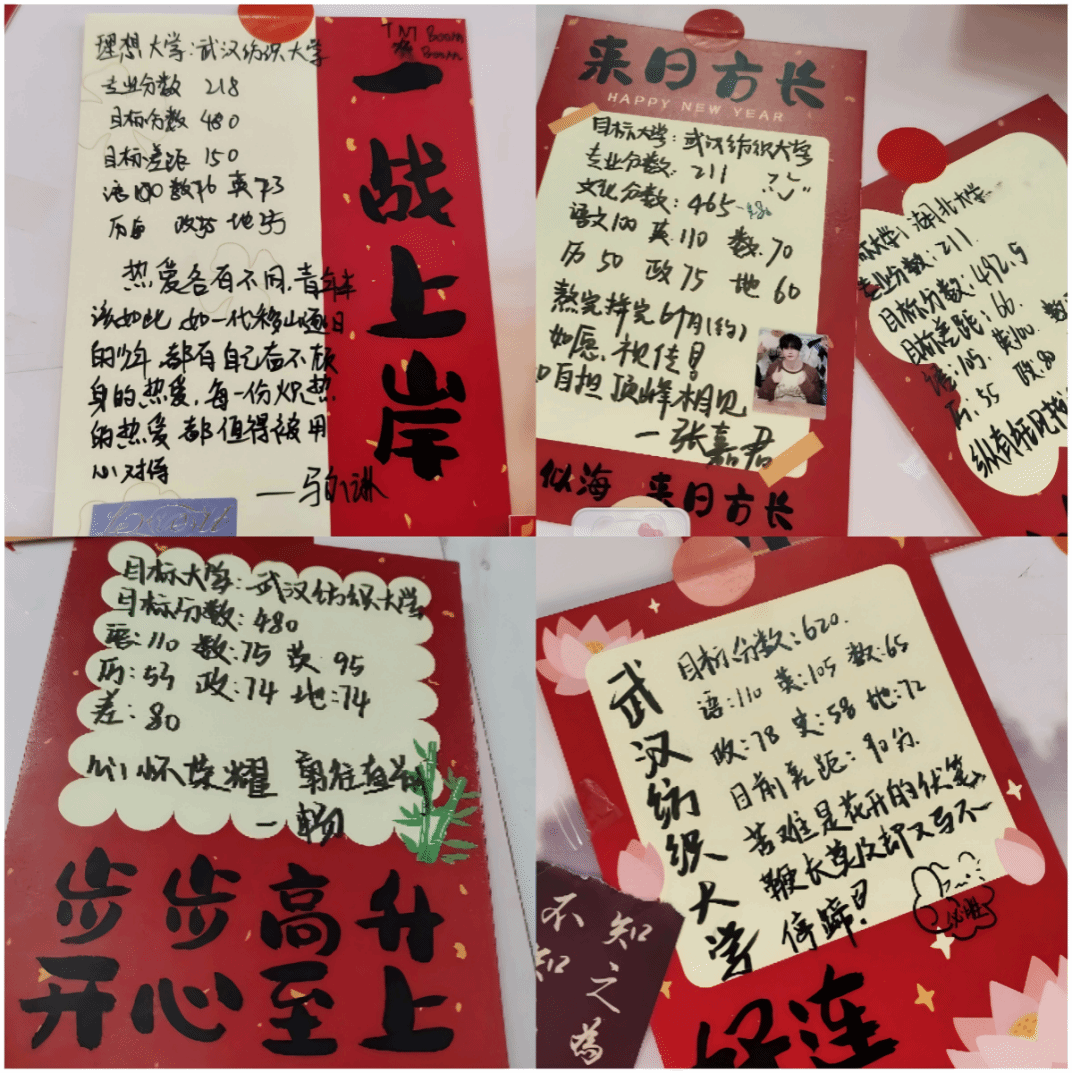 理想大学:武汉纺织大学
专业分数 218
目标分数 480
目标差距 150
语100 数76 英73
政55 地
热爱各有不同,青年本
该如此 如一代移山逐日
的少年 都有自己奋不顾
身的热爱,每一份炽热
的热爱 都值得被用
心对待
一战上岸
来日方长
HAPPY NEW YEAR
目标大学:武汉纺织大学
专业分数:211
文化分数:465-480
语文100 英110 数70
历50 政75 地60
熬完择完6个月(约)
如愿,祝佳!
自担 顶峰相见
—张嘉君
似海 来日方长
大学:湖北大学
专业分数:211
目标分数:492.5
目标差距:66
语:105 英:100 数
历:55 政:80
纵有狂风
目标大学:武汉纺织大学
目标分数:480
语:110 数:75 英:95
历:53 政:74 地:74
差:80
心怀荣耀
步步高升
开心至上
武汉纺织大学
目标分数:620.
语:110 英:105 数:65
政:78 史:58 地:72
目前差距:90分
苦难是花开的伏笔
鞭长莫及却又马不
停蹄!
必胜
好连
知之为
不知